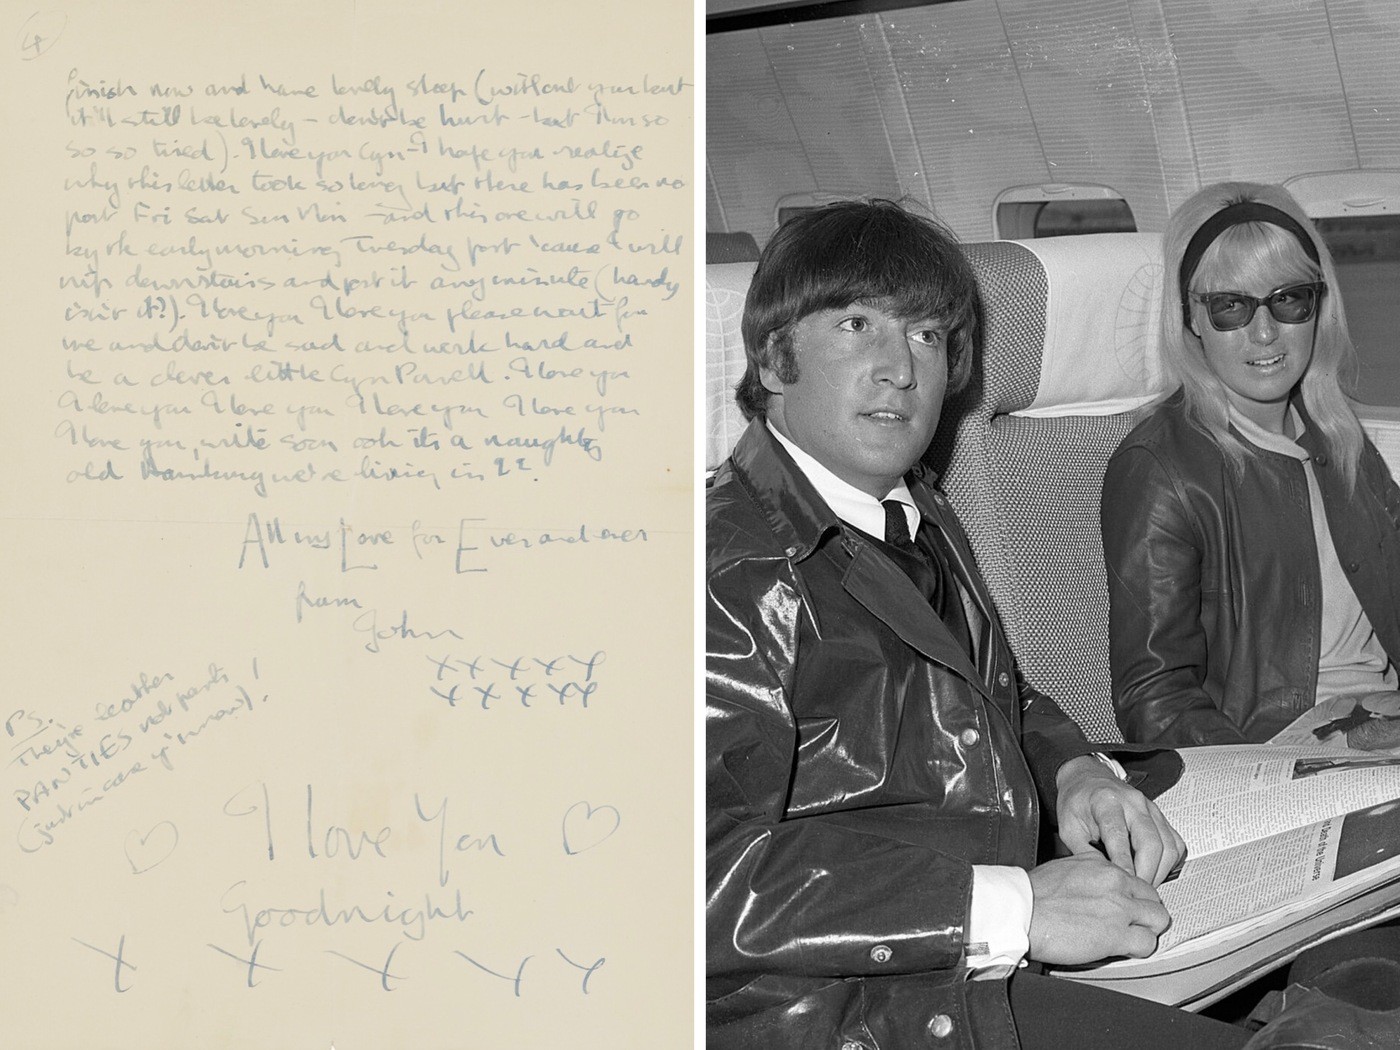 4
finish now and have lovely sleep (without you but
it'll still be lovely – don't be hurt – but I'm so
so so tired). I love you Cyn – I hope you realize
why this letter took so long but there has been no
post Fri Sat Sun Mon – and this one will go
by the early morning Tuesday post 'cause I will
nip downstairs and post it any minute (handy
isn't it?). I love you I love you please wait for
me and don't be sad and work hard and
be a clever little Cyn Powell. I love you
I love you I love you I love you I love you
I love you, write soon ooh it's a naughty
old Hamburg we're living in!!
All my Love for Ever and ever
from
John
xxxxxx
xxxxxx
P.S.
They're leather
PANTIES not pants
(just in case y'know)!
I love You
Goodnight
x x x x x
Death of the Universe